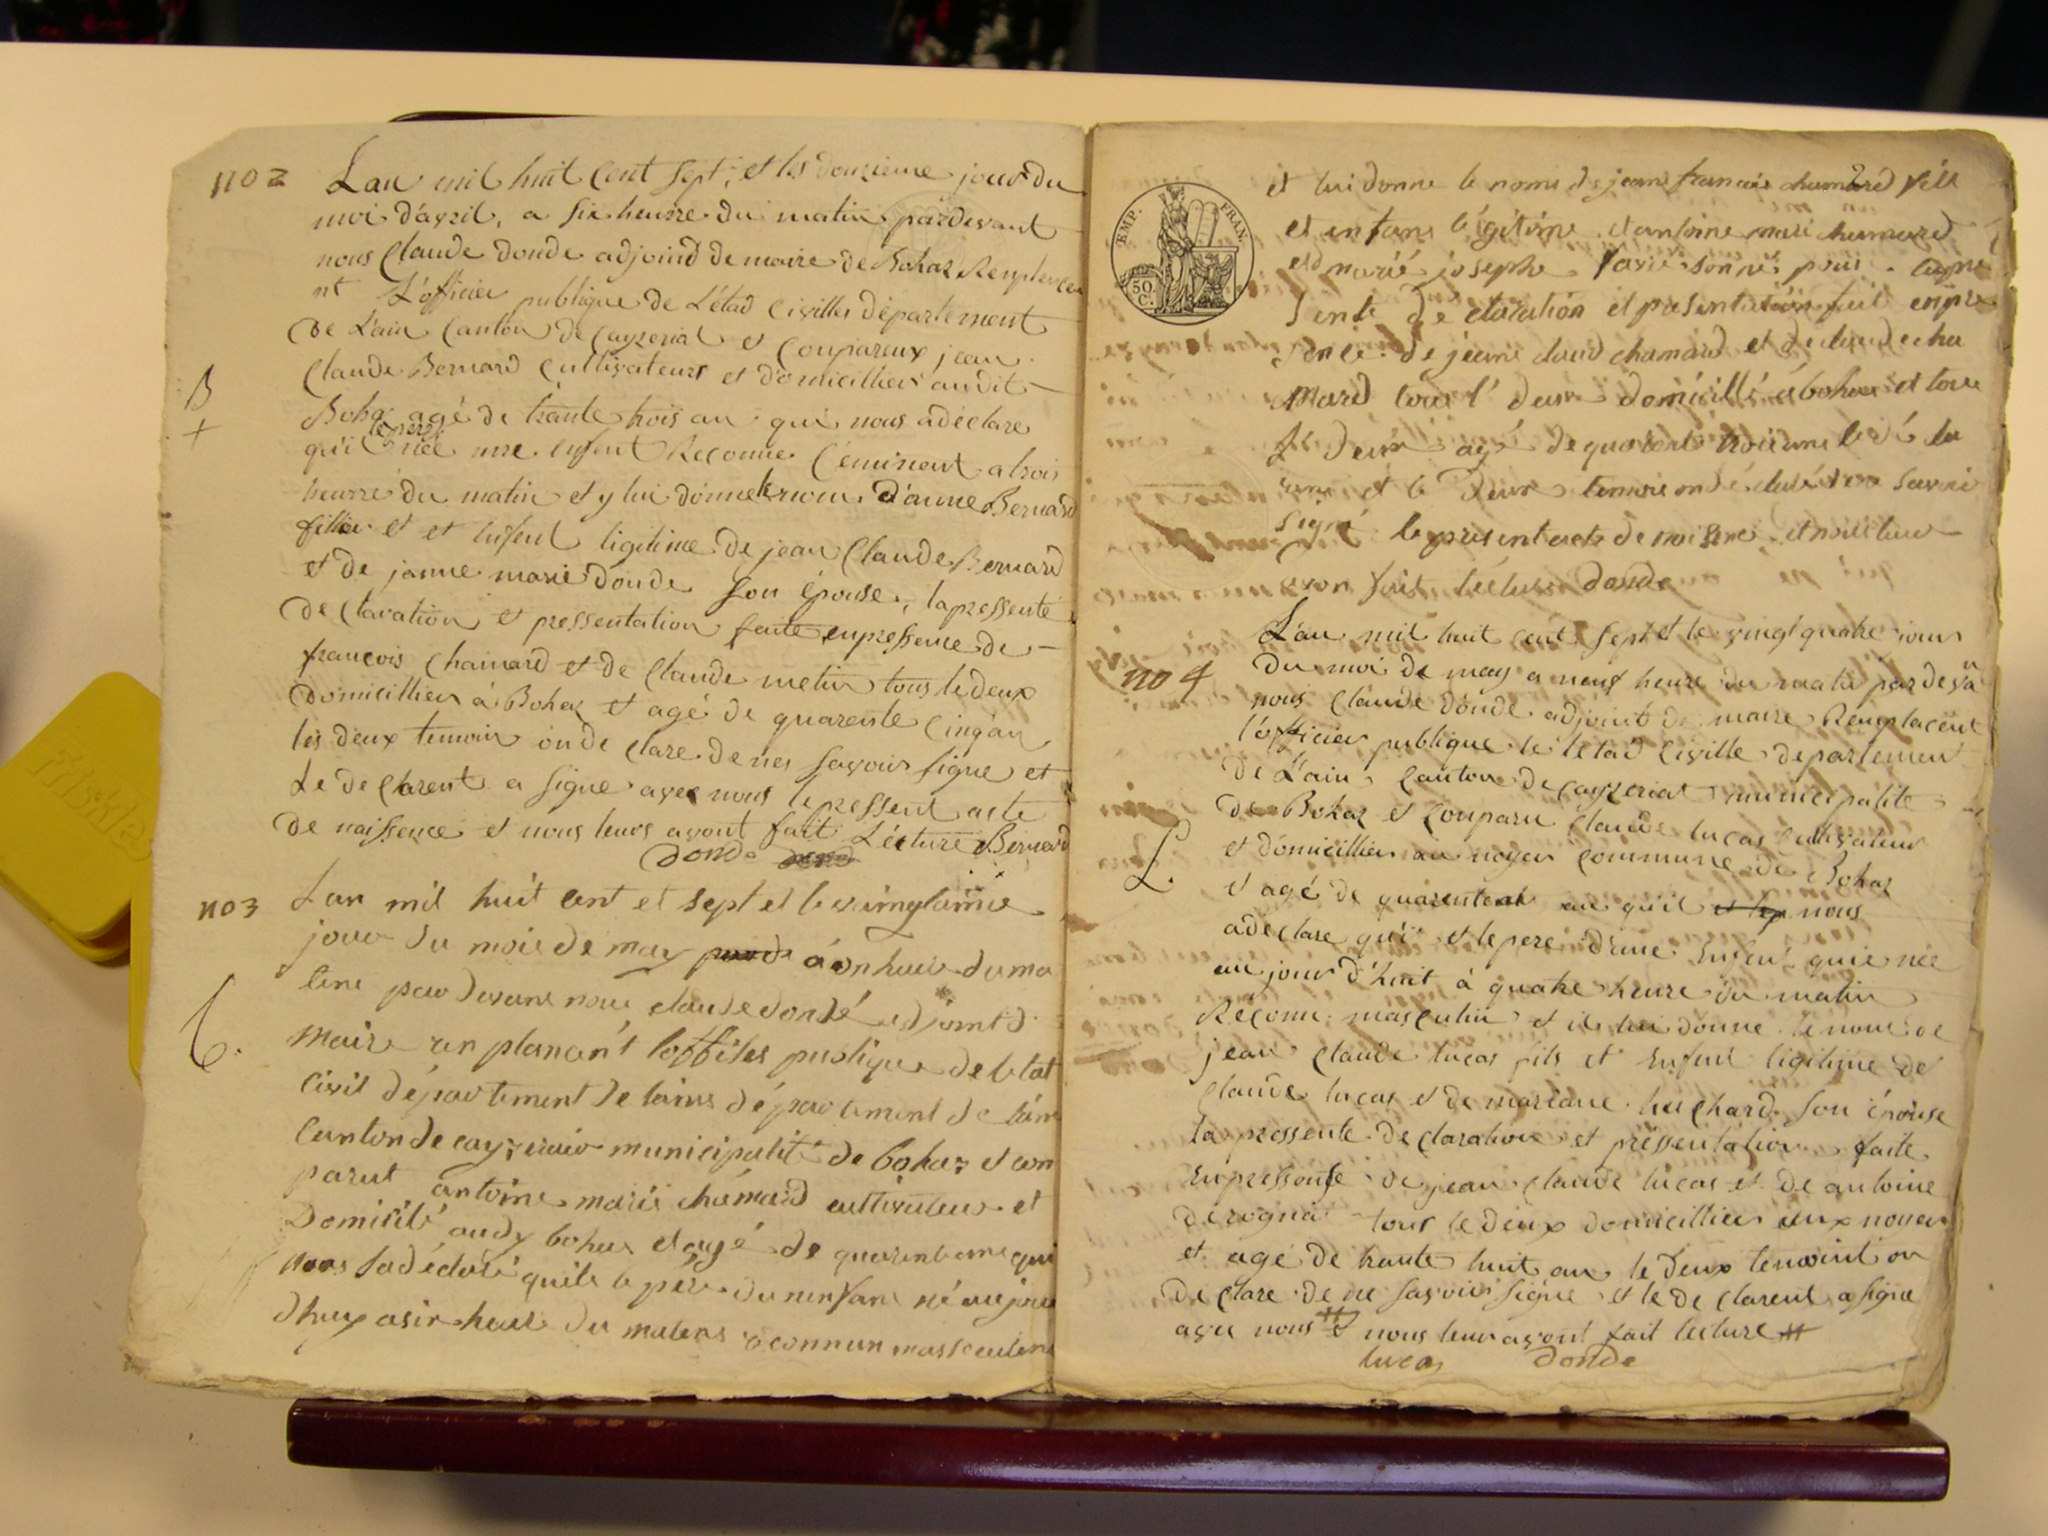 no 2
Lan mil huit Cent Sept; et les douzieme jour du
moi d'avril, a six heurre du matin pardevant
nous Claude donde adjoind de maire de Bohaz Remplence
nt L'officier publique de L'étad Civilles département
de Lain Canton de Cayzeriat et Conpareux jean
Claude Bernard Cultivateurs et domicillier audit
B
+
Bohaz agé de trante trois an qui nous a déclare
le pere
qu'il née une enfent Reconnue féminent a trois
heurre du matin et y lui donne le nom d'anne Bernard
fillie et et enfent ligitime de jean Claude Bernard
et de janne marie donde son épouse, la pressente
de Claration et pressentation faite enpressence de
françois Chamard et de Claude metin tous le deux
domicillier à Bohaz et agé de quarente Cinq an
les deux temoin on de Clare de nes savoir signe et
Le de Clarent a signe avec nous le pressent acte
de naissence et nous leurs avont fait Lécture Bernard
Donde
no 3
Lan mil huit cent et sept et le
jour du mois de may à heur du ma
tins par devans nous claude dondé adjoint d
maire an plançant loffises publique de letat
civil département de lains département de lains
Canton de municipalité de bohaz et com
parut antoine marie chamard cultivateur et
Domicilé au dy bohas et agé de quarente ans qui
nous la déclaré quile le père dun enfans né aujour
dhuy a sir heur du matens reconnu massculens
C.
2
EMP. FRAN.
50 C.
et lui donne le nome de jeans francois chumard fils
et enfans légitime et antoine marie chumard
et marié josephe
sente déclaration et présentation fait en pre
sence de jeans claud chamard et de claude cha
mard tous l' deux domicillé à bohas et tous
l' deux agé de quarente trois ans le dé cla
rans et le deux temoins on déclaré ne savoir
signé le présent acte de naisence et nous leur
avon fait lecture donde
no 4
Lau mil huit cent sept et le vingt quatre jour
du moi de may a neuf heure du matin par devan
nous Claude donde adjoint de maire Remplacent
l'officier publique de l'etad Civille departemen
de L'ain Canton de Cayzeriat municipalité
de Bohaz et Conparu Claude lucas Cultivateur
L.
et domicillier au noyer Commune de Bohaz
et agé de quarente an qu'il nous
a déclare qu'il et le pere d'une enfent qui é née
au jour d'huit à quatre heure du matin
Réconnu masculin et il lui donne le nom de
jean Claude lucas fils et enfent ligitime de
Claude lucas et de mariane huchard son épouse
la pressente de claration et préssentation faite
enpressense de jean claude lucas et de antoine
dérognat tous le deux domicillier aux noyer
et agé de trante huit an le deux temoint on
de Clare de ne savoir signe et le de Clarent a signe
avec nous # et nous leur avont fait lecture #
lucas donde